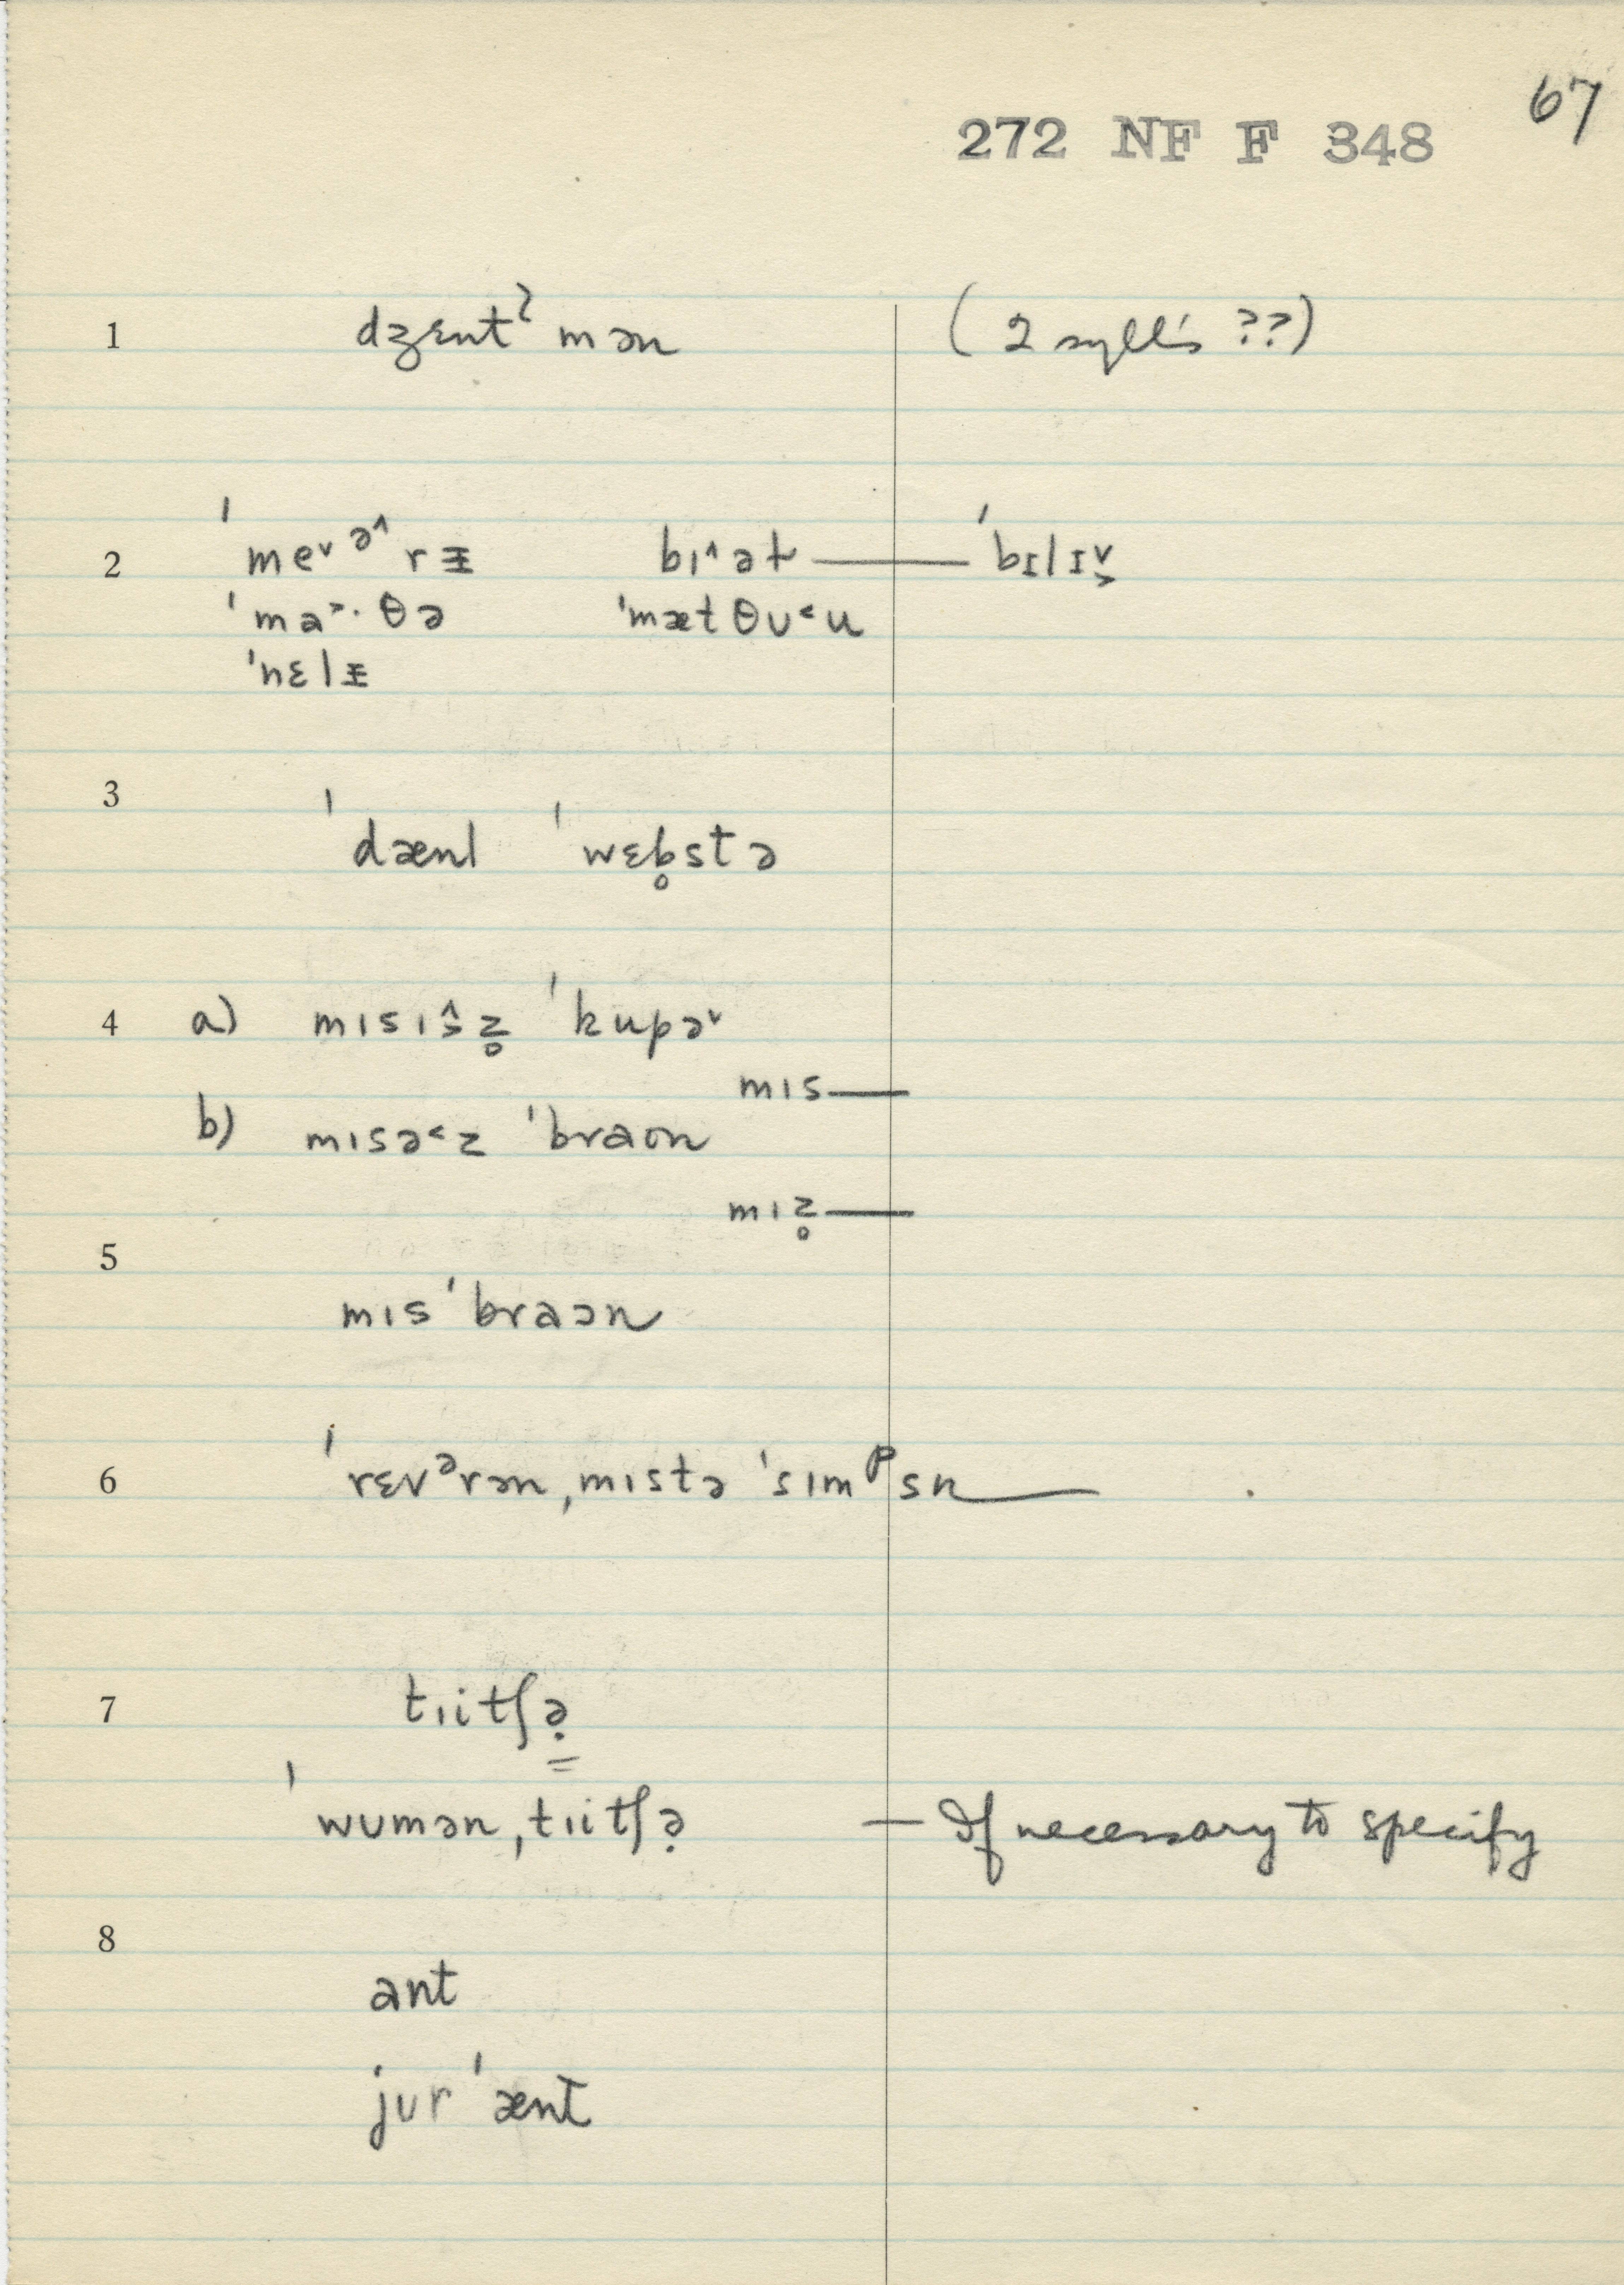 67
272 NF F 348
1 dʒɛntˀmən (2 sylls ??)
2 ˈme˅ə˄rɪ̵ bɪ˄ət — ˈbɪlɪ˅˃
ˈma˃·θə ˈmætθᴜ˂u
ˈnɛlɪ̵
3 ˈdænl ˈwɛb̥stə
4 a) mɪsɪŝ̬z̥ ˈkupə˅
mɪs—
b) mɪsə˂z ˈbraʊn
mɪz̥—
5
mɪsˈbraɔn
6 ˈrɛvᵊrən ˌmɪstə ˈsɪmᵖsn
7 tɪitʃə̣
ˈwᴜmən ˌtɪitʃə̣ — If necessary to specify
8
ant
jᴜr ˈænt